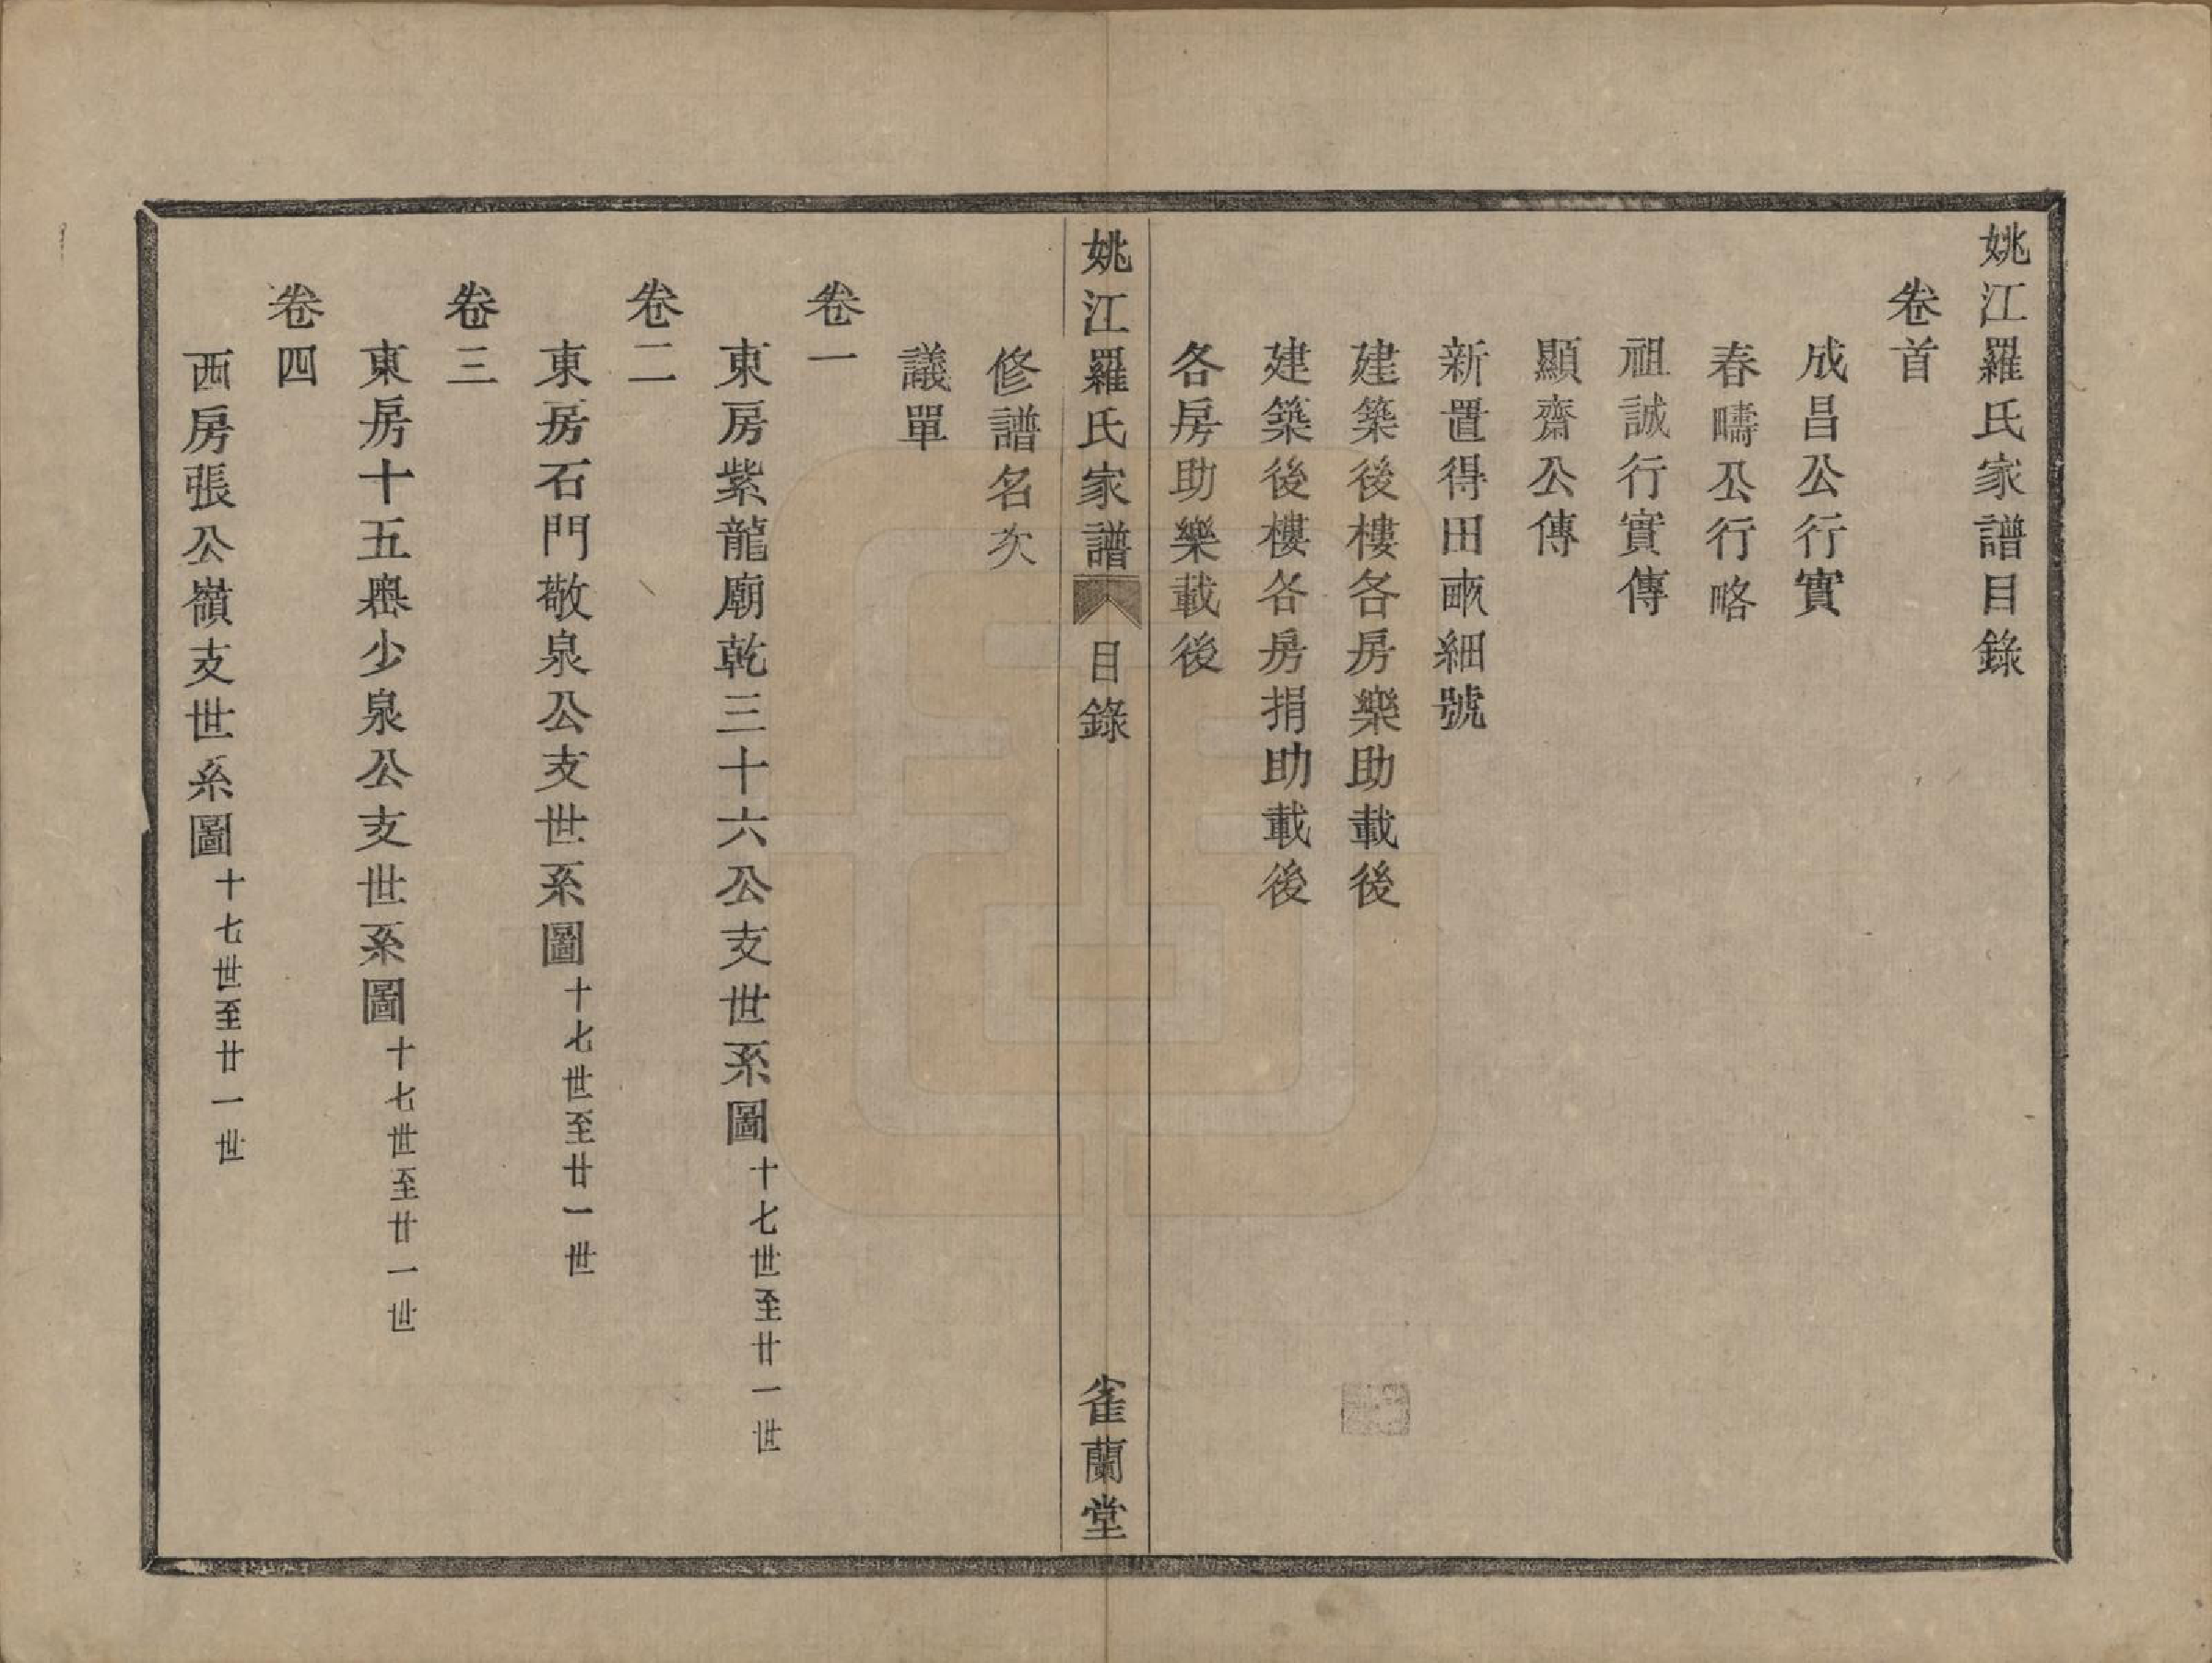 姚江羅氏家譜目錄
卷首
成昌公行實
春疇公行略
祖誠行實傳
顯齋公傳
新置得田畝細號
建築後樓各房樂助載後
建築後樓各房捐助載後
各房助樂載後
姚江羅氏家譜 目錄 雀蘭堂
修譜名次
議單
卷一
東房紫龍廟乾三十六公支世系圖十七世至廿一世
卷二
東房石門敬泉公支世系圖十七世至廿一世
卷三
東房十五嶴少泉公支世系圖十七世至廿一世
卷四
西房張公嶺支世系圖十七世至廿一世